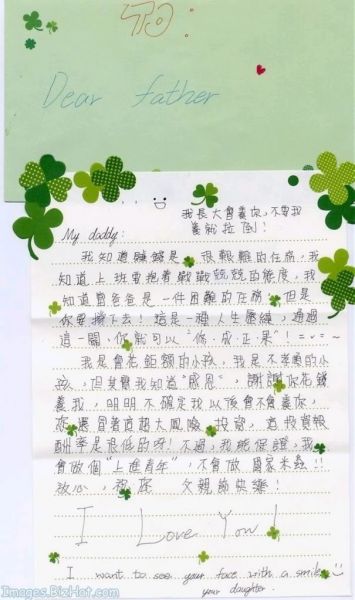 To:
Dear father
我長大會養你，不要我
養就拉倒！
My daddy:
我知道賺錢是一很艱難的任務，我
知道上班要抱著戰戰兢兢的態度，我
知道當爸爸是一件困難的任務，但是
你要撐下去！這是一種人生歷練，通過
這一關，你就可以"修成正果"！
我是會花鉅額的小孩，我是不孝順的小
孩，但其實我知道"感恩"，謝謝你花錢
養我，明明不確定我以後會不會養你，
你還冒著這超大風險，投資，這投資報
酬率是很低的呀！不過，我能保證，我
會做個"上進青年"，不會做國家米蟲！！
放心，祝您 父親節快樂！
I Love You!
I want to see your face with a smile
your daughter.
Images.BizHot.com